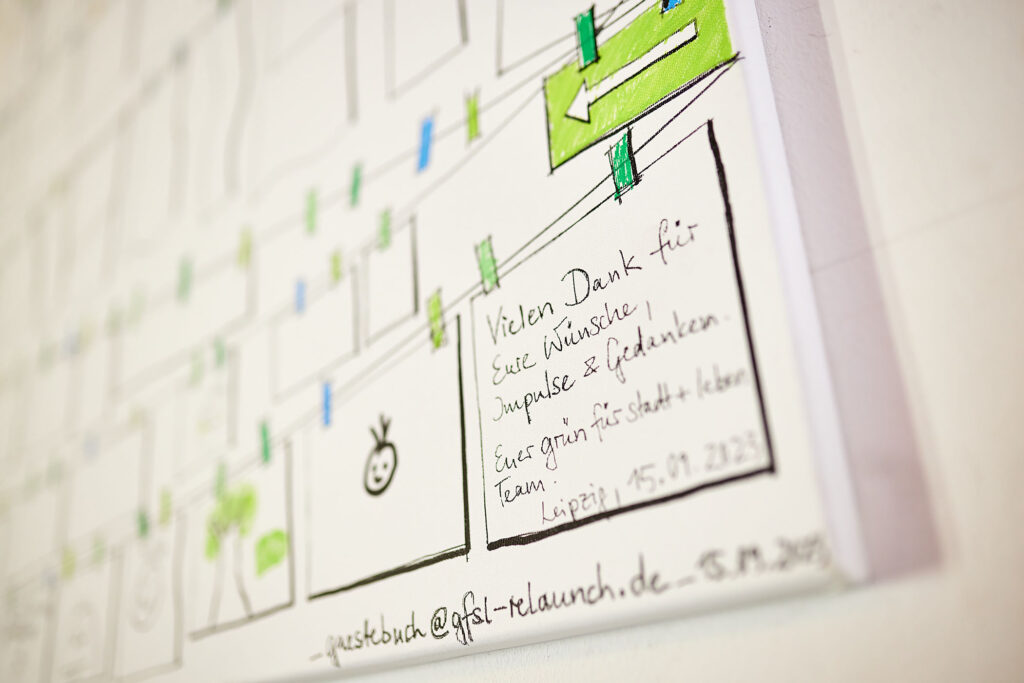 Vielen Dank für
Eure Wünsche,
Impulse & Gedanken.
Euer grün für stadt + leben
Team.
Leipzig, 15.09.2023
_guestebuch@gfsl-relaunch.de_15.09.2023